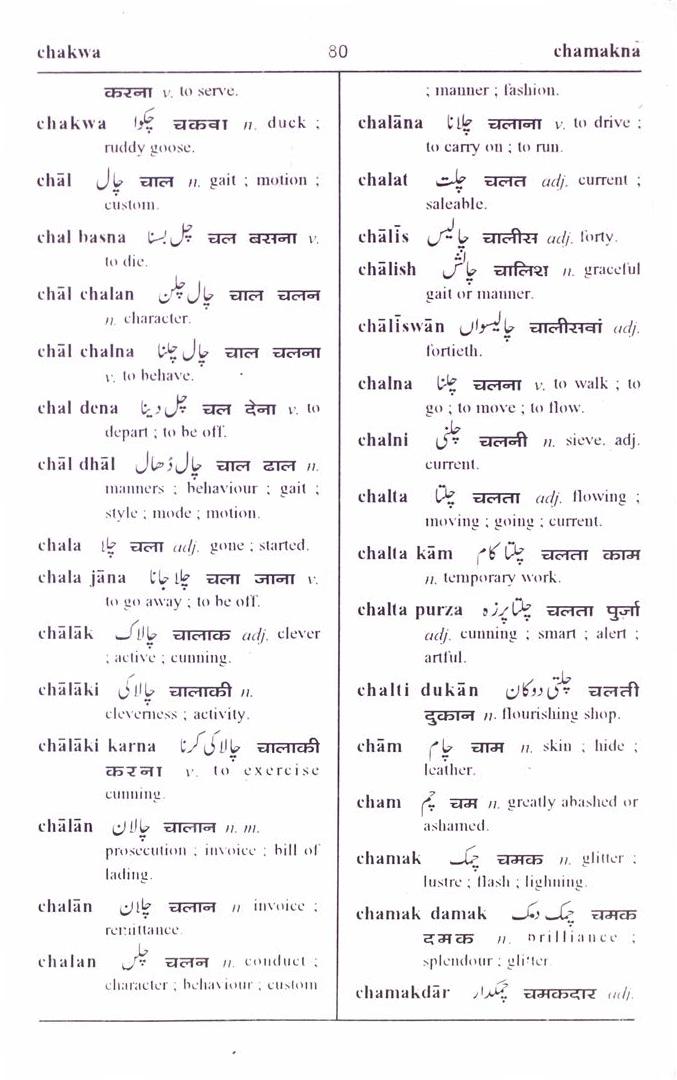 chakwa 80 chamaknā
करना v. to serve.
chakwa چکوا चकवा n. duck ;
ruddy goose.
chāl چال चाल n. gait ; motion ;
custom.
chal basna چل بسنا चल बसना v.
to die.
chāl chalan چال چلن चाल चलन
n. character.
chāl chalna چال چلنا चाल चलना
v. to behave.
chal dena چل دینا चल देना v. to
depart ; to be off.
chāl dhāl چال ڈھال चाल ढाल n.
manners ; behaviour ; gait ;
style ; mode ; motion.
chala چلا चला adj. gone ; started.
chala jāna چلا جانا चला जाना v.
to go away ; to be off.
chālāk چالاک चालाक adj. clever
; active ; cunning.
chālāki چالاکی चालाकी n.
cleverness ; activity.
chālāki karna چالاکی کرنا चालाकी
करना v. to exercise
cunning.
chālān چالان चालान n. m.
prosecution ; invoice ; bill of
lading.
chalān چلان चलान n invoice ;
remittance.
chalan چلن चलन n. conduct ;
character ; behaviour ; custom
; manner ; fashion.
chalāna چلانا चलाना v. to drive ;
to carry on ; to run.
chalat چلت चलत adj. current ;
saleable.
chālīs چالیس चालीस adj. forty.
chālish چالش चालिश n. graceful
gait or manner.
chālīswān چالیسواں चालीसवां adj.
fortieth.
chalna چلنا चलना v. to walk ; to
go ; to move ; to flow.
chalni چلنی चलनी n. sieve. adj.
current.
chalta چلتا चलता adj. flowing ;
moving ; going ; current.
chalta kām چلتا کام चलता काम
n. temporary work.
chalta purza چلتا پرزہ चलता पुर्जा
adj. cunning ; smart ; alert ;
artful.
chalti dukān چلتی دوکان चलती
दुकान n. flourishing shop.
chām چام चाम n. skin ; hide ;
leather.
cham چم चम n. greatly abashed or
ashamed.
chamak چمک चमक n. glitter ;
lustre ; flash ; lighning.
chamak damak چمک دمک चमक
दमक n. brilliance ;
splendour ; glitter
chamakdār چمکدار चमकदार adj.